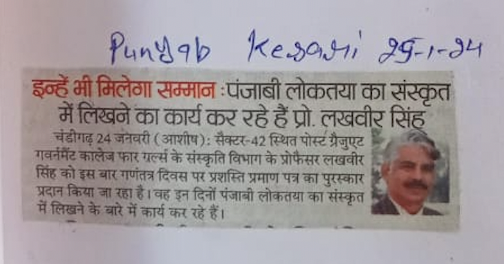 Punjab Kesari 25-1-24
इन्हें भी मिलेगा सम्मान :पंजाबी लोकतया का संस्कृत
में लिखने का कार्य कर रहे हैं प्रो. लखवीर सिंह
चंडीगढ़ 24 जनवरी (आशीष): सैक्टर-42 स्थित पोस्ट ग्रैजुएट
गवर्नमैंट कालेज फार गर्ल्स के संस्कृति विभाग के प्रोफैसर लखवीर
सिंह को इस बार गणंतत्र दिवस पर प्रशस्ति प्रमाण पत्र का पुरस्कार
प्रदान किया जा रहा है। वह इन दिनों पंजाबी लोकतया का संस्कृत
में लिखने के बारे में कार्य कर रहे हैं।